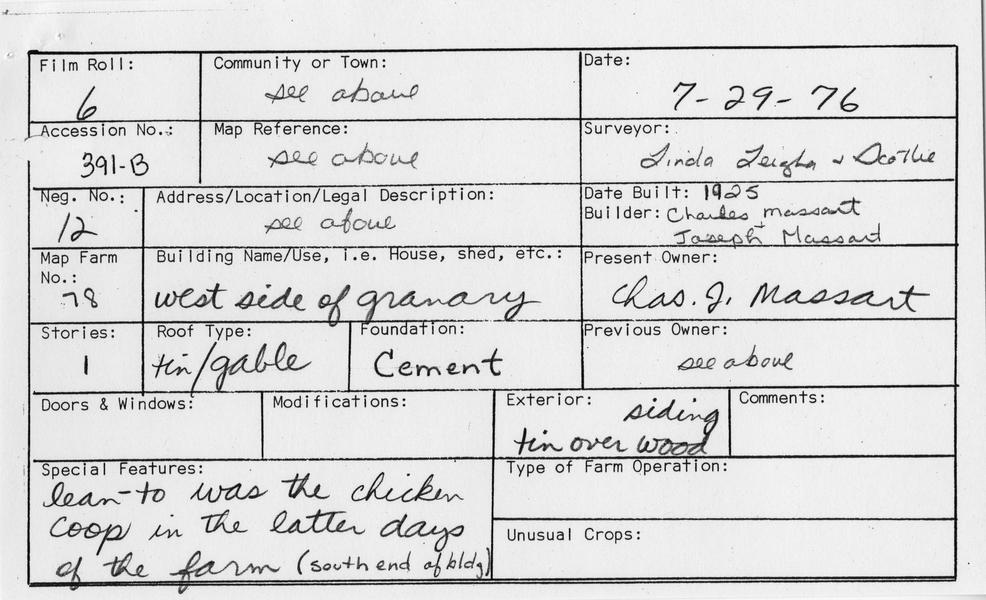 Film Roll:
6
Community or Town:
see above
Date:
7-29-76
Accession No.:
391-B
Map Reference:
see above
Surveyor:
Linda Leigha & Scottie
Neg. No.:
12
Address/Location/Legal Description:
see above
Date Built: 1925
Builder: Charles Massart
+
Joseph Massart
Map Farm
No.:
78
Building Name/Use, i.e. House, shed, etc.:
west side of granary
Present Owner:
Chas. J. Massart
Stories:
1
Roof Type:
tin/gable
Foundation:
Cement
Previous Owner:
see above
Doors & Windows:
Modifications:
Exterior: siding
tin over wood
Comments:
Special Features:
lean-to was the chicken
coop in the latter days
of the farm (south end of bldg)
Type of Farm Operation:
Unusual Crops: